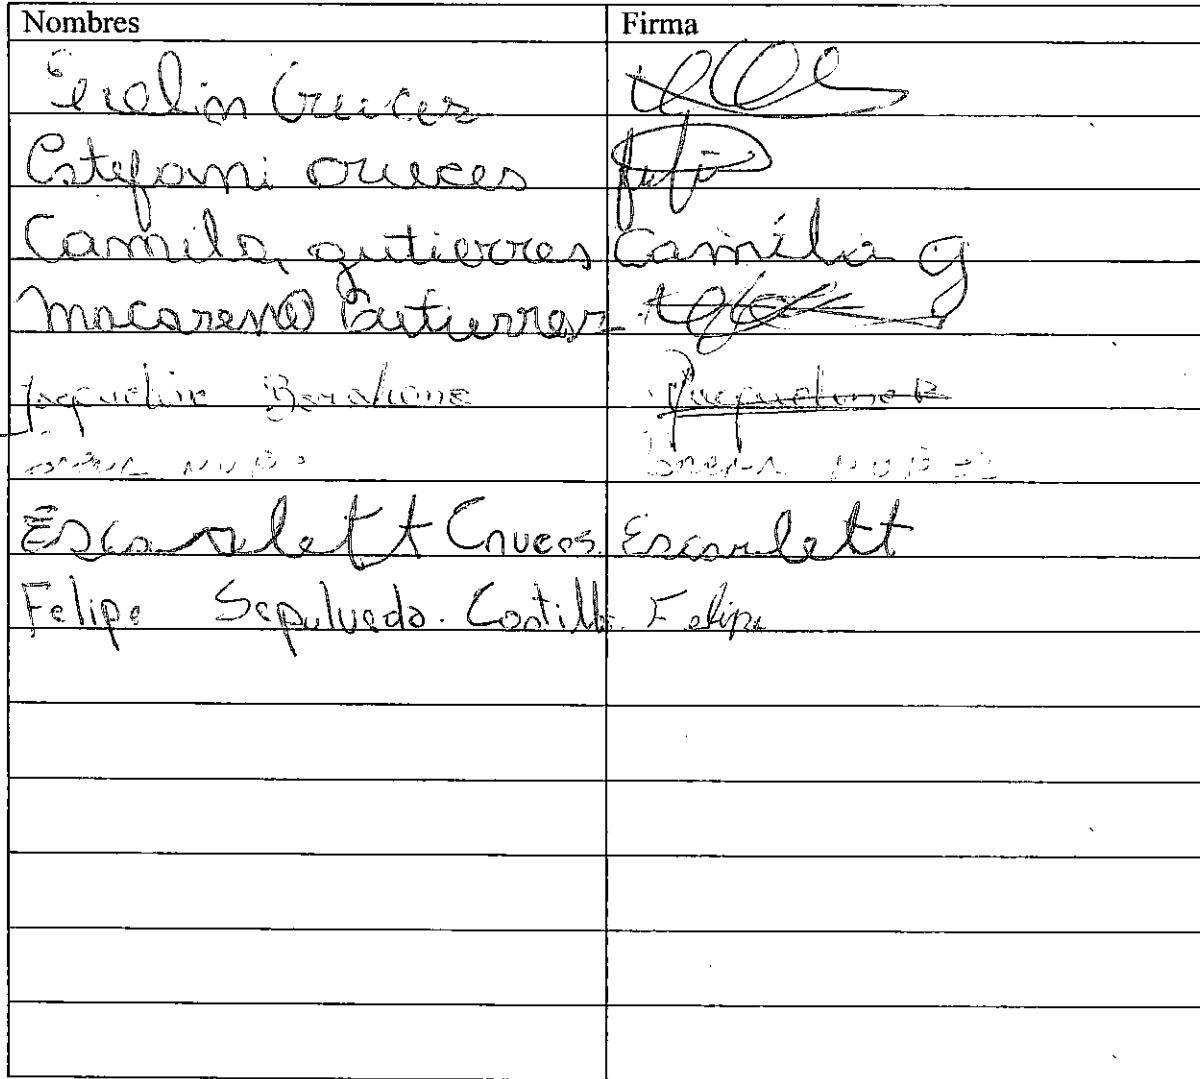 Nombres Firma
Evelin Cruces
Estefani cruces
Camila gutierres Camila G
Macarena Gutierrez
Jacqueline Barahona Jacqueline B
Escarlett Cruces Escarlett
Felipe Sepulveda. Castillo Felipe